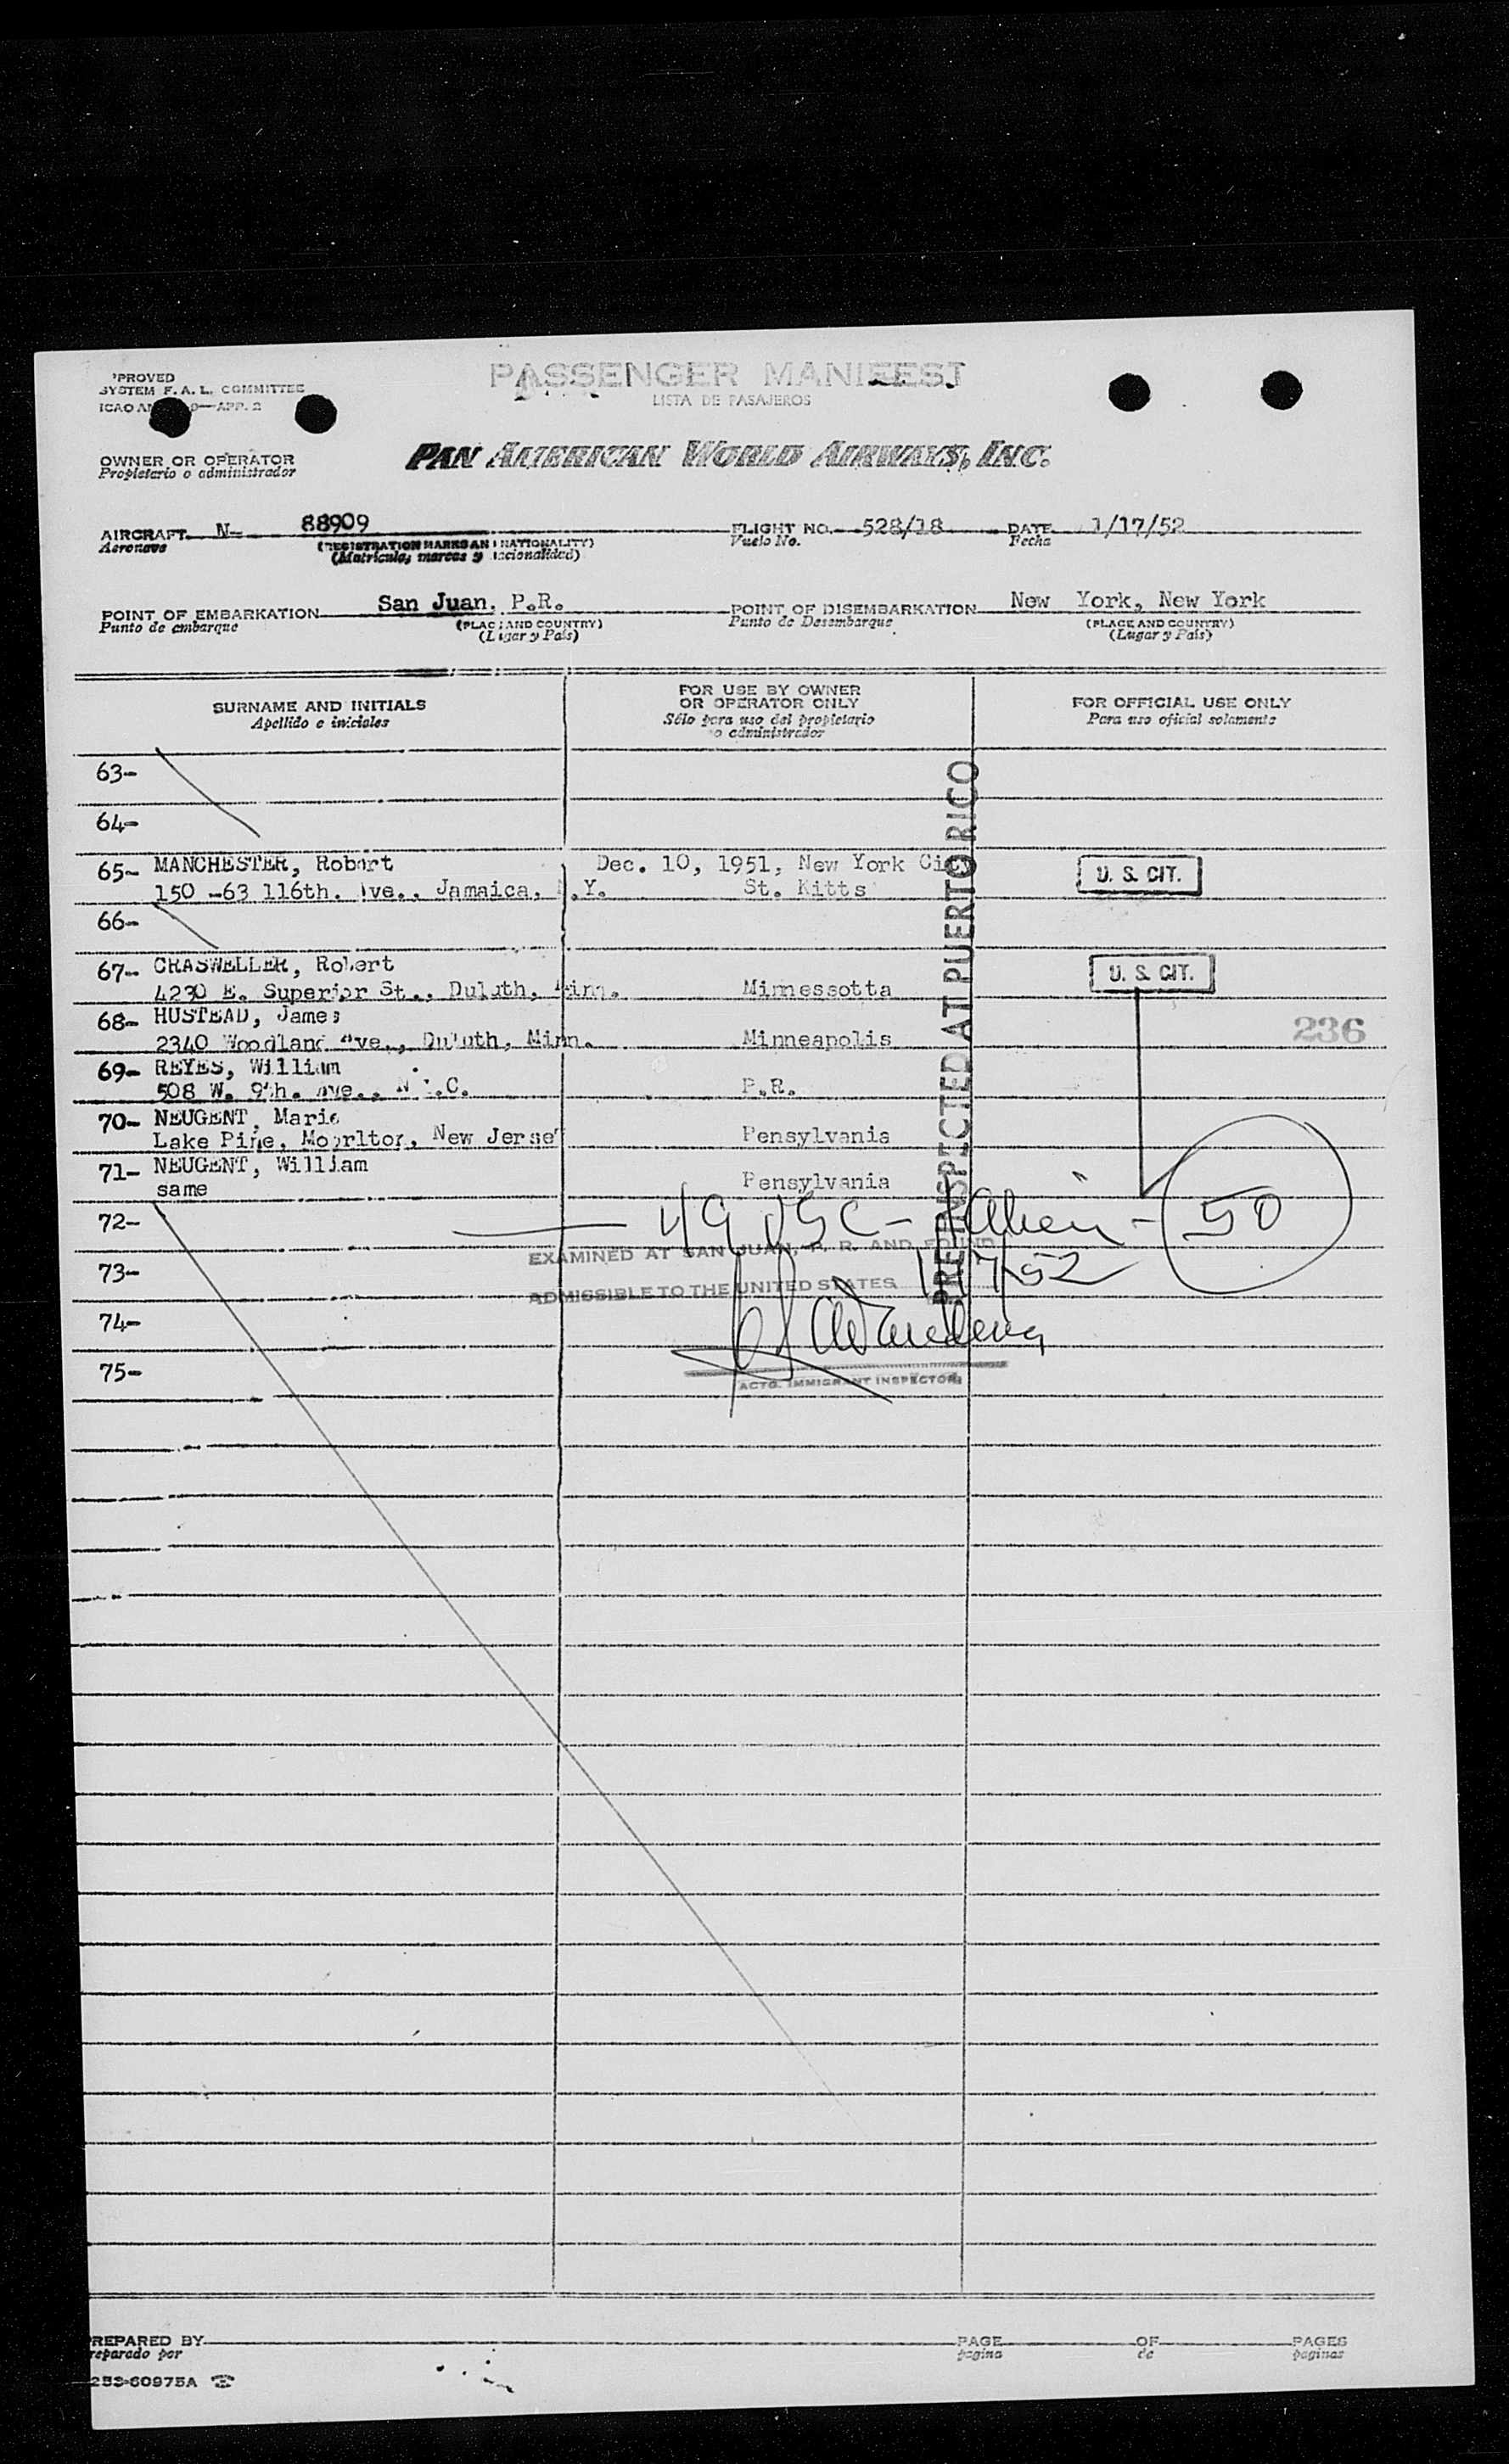 PASSENGER MANIFEST
LISTA DE PASAJEROS
PROVED
SYSTEM F. A. L. COMMITTEE
ICAO AN 9—APP. 2
OWNER OR OPERATOR
Propietario o administrador
PAN AMERICAN WORLD AIRWAYS, INC.
AIRCRAFT N- 88909 FLIGHT NO. 528/18 DATE 1/17/52
Aeronave (REGISTRATION MARKS AND NATIONALITY) Vuelo No. Fecha
(Matrícula, marcas y nacionalidad)
POINT OF EMBARKATION San Juan, P.R. POINT OF DISEMBARKATION New York, New York
Punto de embarque (PLACE AND COUNTRY) Punto de Desembarque (PLACE AND COUNTRY)
(Lugar y País) (Lugar y País)
SURNAME AND INITIALS FOR USE BY OWNER OR OPERATOR ONLY FOR OFFICIAL USE ONLY
Apellido e iniciales Sólo para uso del propietario o administrador Para uso oficial solamente
63-
64-
65- MANCHESTER, Robert Dec. 10, 1951, New York Ci U. S. CIT.
150 -63 116th. Ave., Jamaica, N.Y. St. Kitts
66-
67- CRASWELLER, Robert U. S. CIT.
4230 E. Superior St., Duluth, Minn. Minnessotta
68- HUSTEAD, James 236
2340 Woodland Ave., Duluth, Minn. Minneapolis
69- REYES, William
508 W. 9th. Ave., N.Y.C. P.R.
70- NEUGENT, Marie
Lake Pine, Moorlton, New Jersey Pensylvania
71- NEUGENT, William
same Pensylvania
PRE-INSPECTED AT PUERTO RICO
72- 49 USC - 1 Alien - 50
EXAMINED AT SAN JUAN, P. R. AND FOUND
73- 1/17/52
ADMISSIBLE TO THE UNITED STATES
74-
75-
ACTG. IMMIGRANT INSPECTOR
PREPARED BY PAGE OF PAGES
reparado por página de páginas
253-60975A